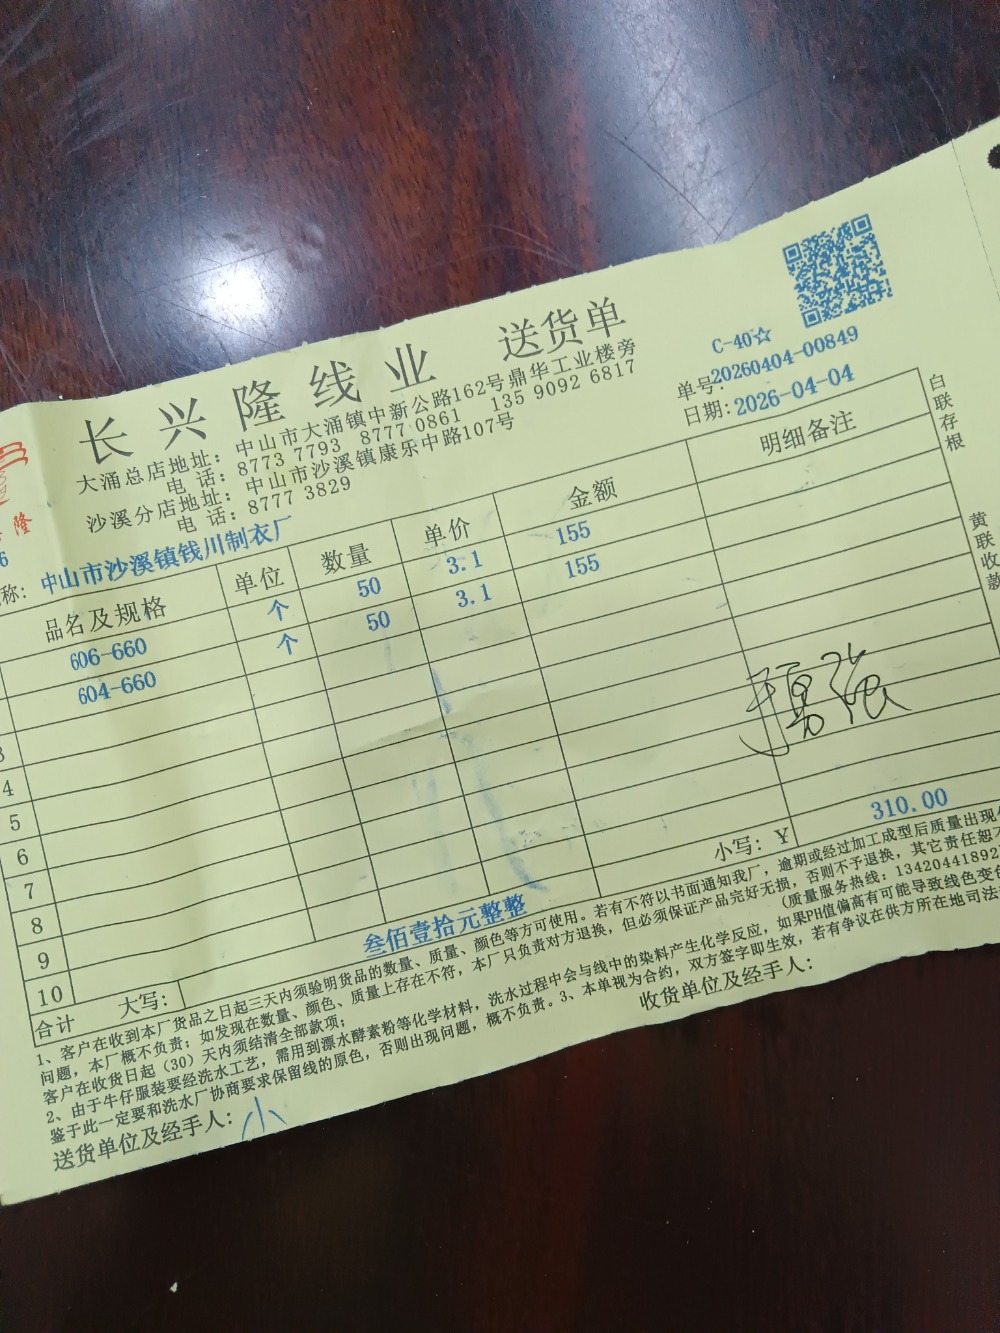 长兴隆线业 送货单
C-40☆
单号:20260404-00849
日期:2026-04-04
大涌总店地址:中山市大涌镇中新公路162号鼎华工业楼旁
电 话:8773 7793 8777 0861 135 9092 6817
沙溪分店地址:中山市沙溪镇康乐中路107号
电 话:8777 3829
隆
6
称:中山市沙溪镇钱川制衣厂
品名及规格 单位 数量 单价 金额 明细备注
606-660 个 50 3.1 155
604-660 个 50 3.1 155
3
4
5
6
7
8
9
10
小写:¥ 310.00
合计 大写: 叁佰壹拾元整整
1、客户在收到本厂货品之日起三天内须验明货品的数量、质量、颜色等方可使用。若有不符以书面通知我厂,逾期或经过加工成型后质量出现
问题,本厂概不负责;如发现在数量、颜色、质量上存在不符,本厂只负责对方退换,但必须保证产品完好无损,否则不予退换,其它责任恕不
客户在收货日起(30)天内须结清全部款项; (质量服务热线:1342044189
2、由于牛仔服装要经洗水工艺,需用到漂水酵素粉等化学材料,洗水过程中会与线中的染料产生化学反应,如果PH值偏高有可能导致线色变色
鉴于此一定要和洗水厂协商要求保留线的原色,否则出现问题,概不负责。3、本单视为合约,双方签字即生效,若有争议在供方所在地司法
送货单位及经手人:小 收货单位及经手人:
白联存根
黄联收款